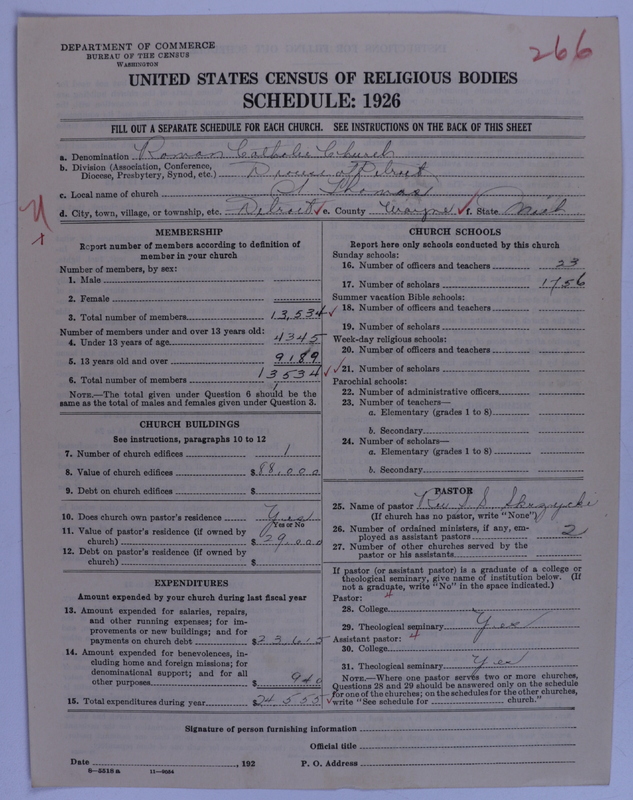 266
DEPARTMENT OF COMMERCE
BUREAU OF THE CENSUS
WASHINGTON
UNITED STATES CENSUS OF RELIGIOUS BODIES
SCHEDULE: 1926
FILL OUT A SEPARATE SCHEDULE FOR EACH CHURCH. SEE INSTRUCTIONS ON THE BACK OF THIS SHEET
a. Denomination Roman Catholic Church
b. Division (Association, Conference,
Diocese, Presbytery, Synod, etc.) Diocese of Detroit
c. Local name of church St Thomas
d. City, town, village, or township, etc. Detroit e. County Wayne f. State Mich
MEMBERSHIP
Report number of members according to definition of
member in your church
Number of members, by sex:
1. Male
2. Female
3. Total number of members 13,534
Number of members under and over 13 years old:
4. Under 13 years of age 4345
5. 13 years old and over 9189
6. Total number of members 13534
NOTE.—The total given under Question 6 should be the
same as the total of males and females given under Question 3.
CHURCH BUILDINGS
See instructions, paragraphs 10 to 12
7. Number of church edifices 1
8. Value of church edifices $88,000
9. Debt on church edifices $
10. Does church own pastor's residence Yes
Yes or No
11. Value of pastor's residence (if owned by
church) $29,000
12. Debt on pastor's residence (if owned by
church) $
EXPENDITURES
Amount expended by your church during last fiscal year
13. Amount expended for salaries, repairs,
and other running expenses; for im-
provements or new buildings; and for
payments on church debt $23615
14. Amount expended for benevolences, in-
cluding home and foreign missions; for
denominational support; and for all
other purposes $940
15. Total expenditures during year $24,555
CHURCH SCHOOLS
Report here only schools conducted by this church
Sunday schools:
16. Number of officers and teachers 23
17. Number of scholars 1756
Summer vacation Bible schools:
18. Number of officers and teachers
19. Number of scholars
Week-day religious schools:
20. Number of officers and teachers
21. Number of scholars
Parochial schools:
22. Number of administrative officers
23. Number of teachers—
a. Elementary (grades 1 to 8)
b. Secondary
24. Number of scholars—
a. Elementary (grades 1 to 8)
b. Secondary
PASTOR
25. Name of pastor Rev
(If church has no pastor, write "None")
26. Number of ordained ministers, if any, em-
ployed as assistant pastors 2
27. Number of other churches served by the
pastor or his assistants
If pastor (or assistant pastor) is a graduate of a college or
theological seminary, give name of institution below. (If
not a graduate, write "No" in the space indicated.)
Pastor: 4
28. College
29. Theological seminary Yes
Assistant pastor: 4
30. College
31. Theological seminary Yes
NOTE.—Where one pastor serves two or more churches,
Questions 28 and 29 should be answered only on the schedule
for one of the churches; on the schedules for the other churches,
write "See schedule for church."
Signature of person furnishing information
Official title
Date , 192 P. O. Address
8—5518a 11—9034